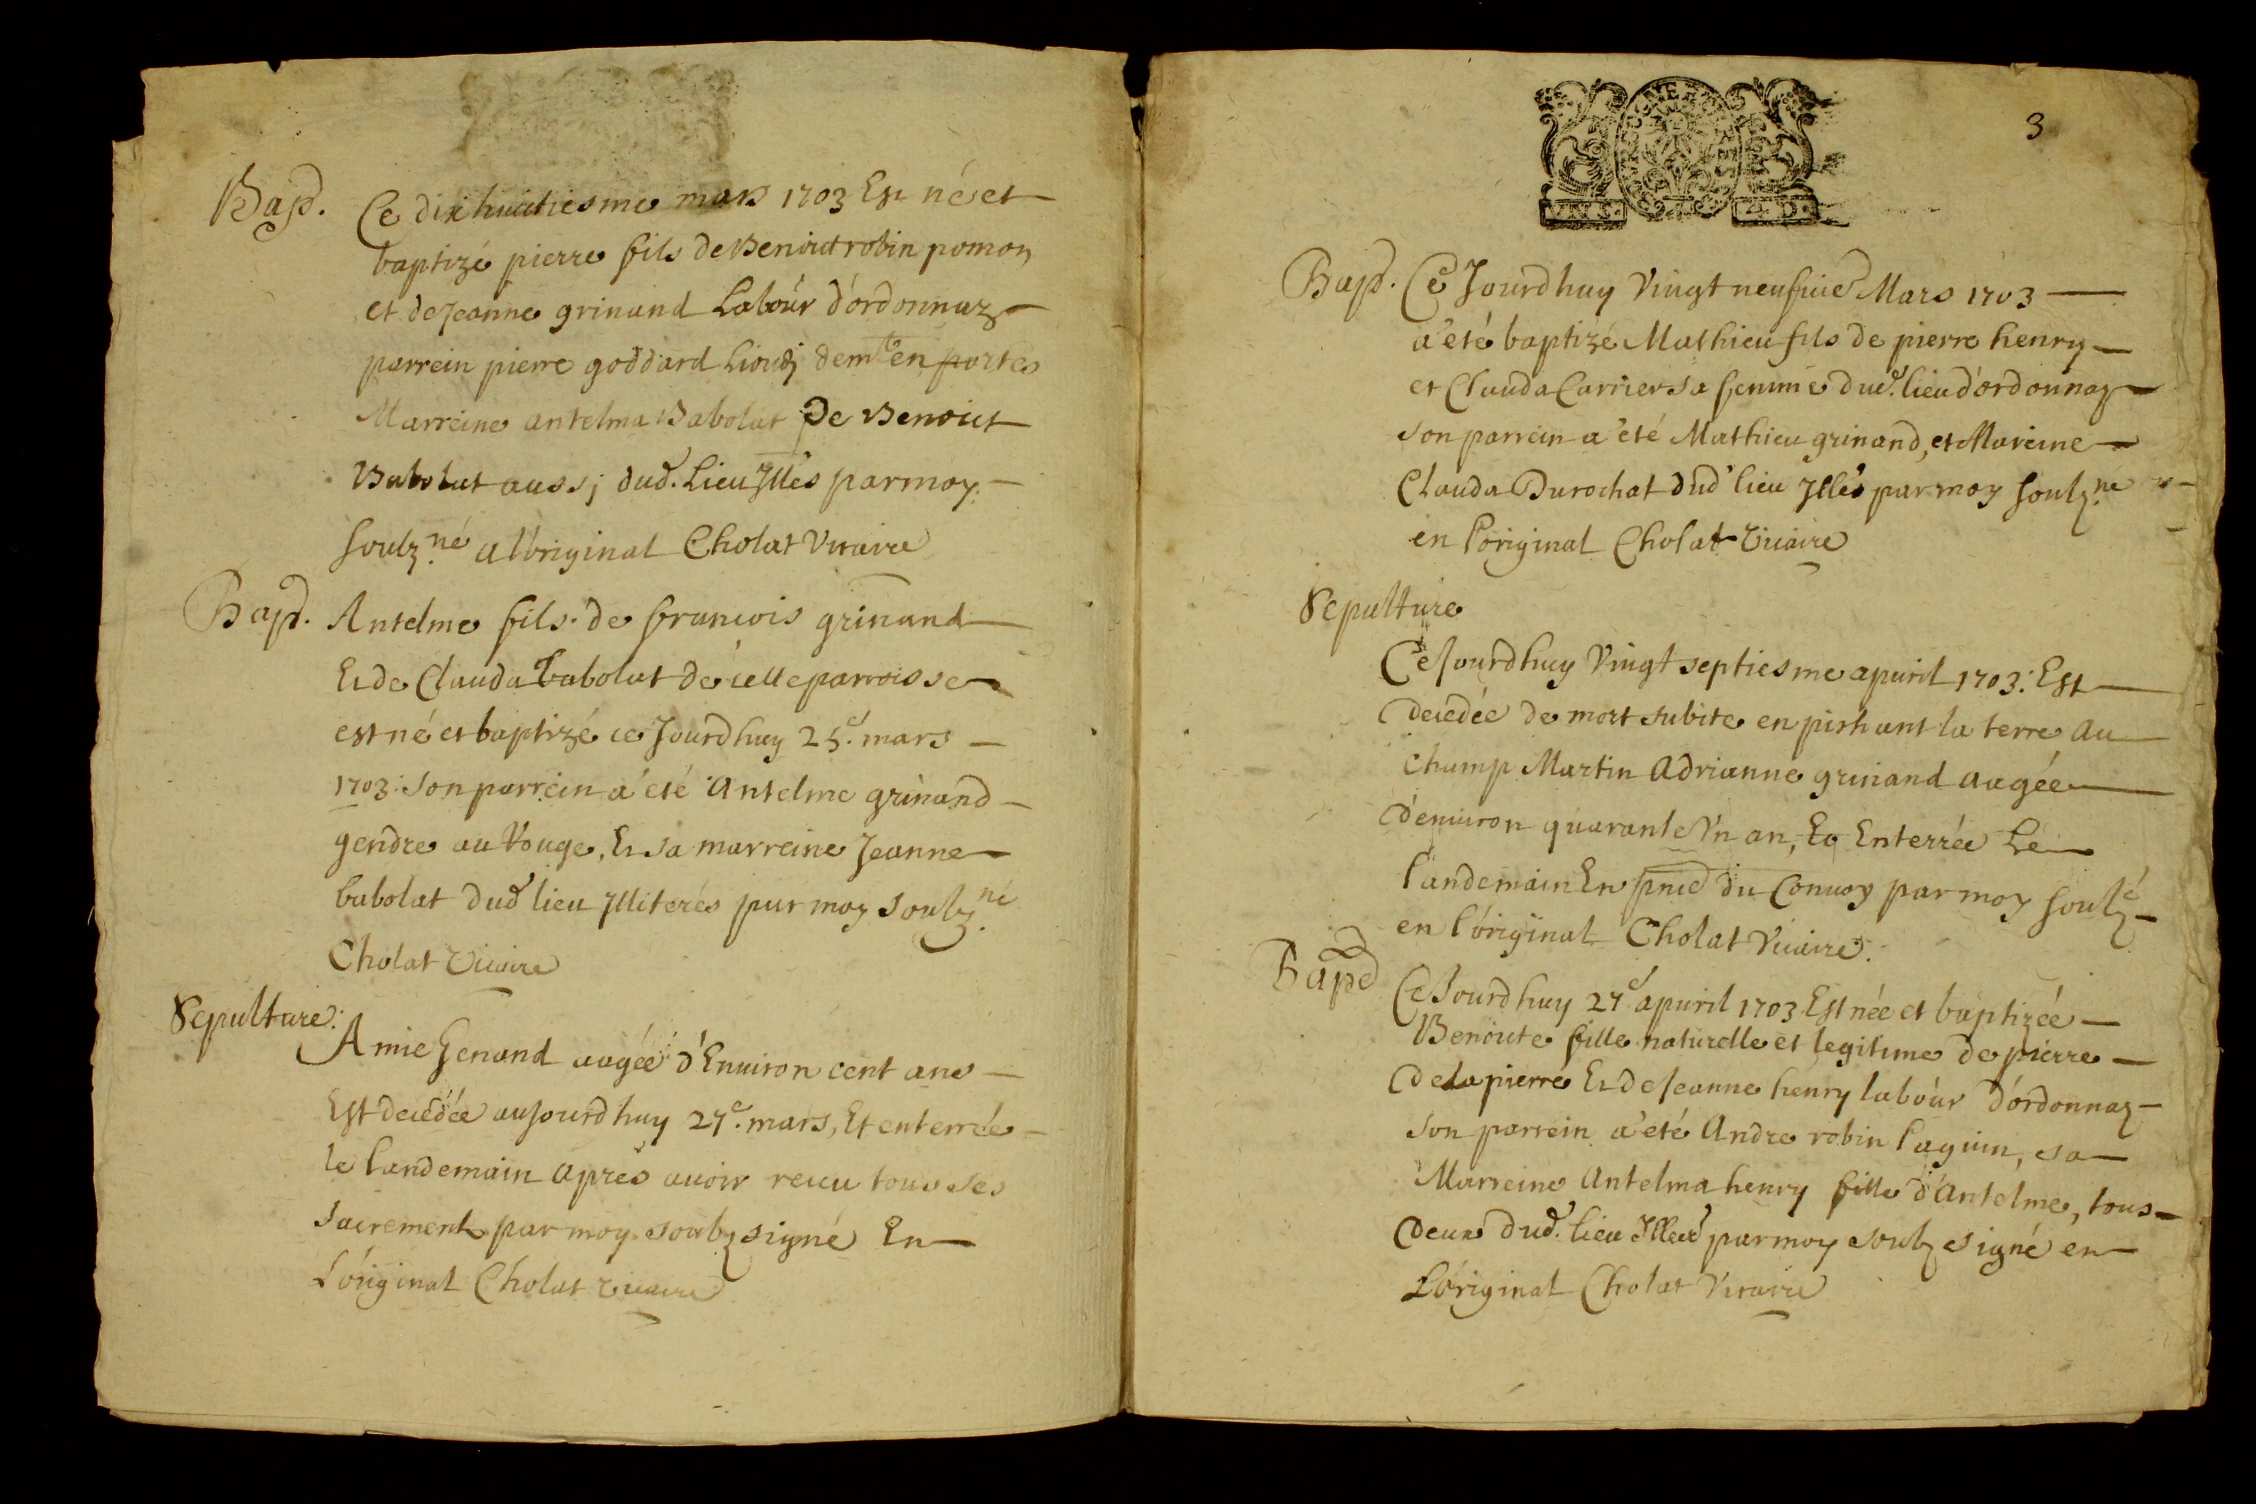 Bapt. Ce dixhuictiesme mars 1703 Est né et
baptizé pierre fils de Benoict robin pomon
et de Jeanne grinand Labour d'ordonnaz
parrein pierre goddard demt en portes
Marreine antelma Babolat De Benoict
Babolat aussj dud. Lieu Jllés par moy
soulz.né a l'original Cholat Vicaire
Bapt. Antelme fils de francois grinand
Et de Clauda babolat de celle parroisse
est né et baptizé ce Jourdhuy 25e. mars
1703. Son parrein a été Antelme grinand
gendre au Vouge, Et sa marreine Jeanne
babolat dud lieu Jlliterés par moy soulz.né
Cholat Vicaire
Sepulture.
Amie Genand aagée d'Enuiron cent ans
Est decedée aujourdhuy 27e. mars, Et enterrée
le landemain apres auoir receu tous ses
sacrements par moy soubzsigné En
L'original Cholat vicaire
3
Bapt. Ce Jourdhuy Vingt neufuie Mars 1703
a été baptizé Mathieu fils de pierre henry
et Clauda Carrier sa femme dud. lieu d'ordonnaz
son parrein a été Mathieu grinand, et Mareine
Clauda Durochat dud lieu Jllés par moy soulz.né
en l'original Cholat Vicaire
Sepulture
Ce Jourdhuy Vingt septiesme apuril 1703. Est
decedée de mort subite en pishant la terre au
champ Martin Adrianne grinand aagée
d'enuiron quarante Vn an, Et Enterrée Le
landemain En pnce du Conuoy par moy soulzé
en l'original Cholat Vicaire.
Bapt Ce Jourdhuy 27e apuril 1703 Est née et baptizée
Benoite fille naturelle et legitime de pierre
Delapierre Et de Jeanne henry labour d'ordonnaz
son parrein a été Andre robin laguin, sa
Marreine Antelma henry fille d'Antelme, tous
deux dud. lieu par moy soubzsigné en
L'original Cholat Vicaire